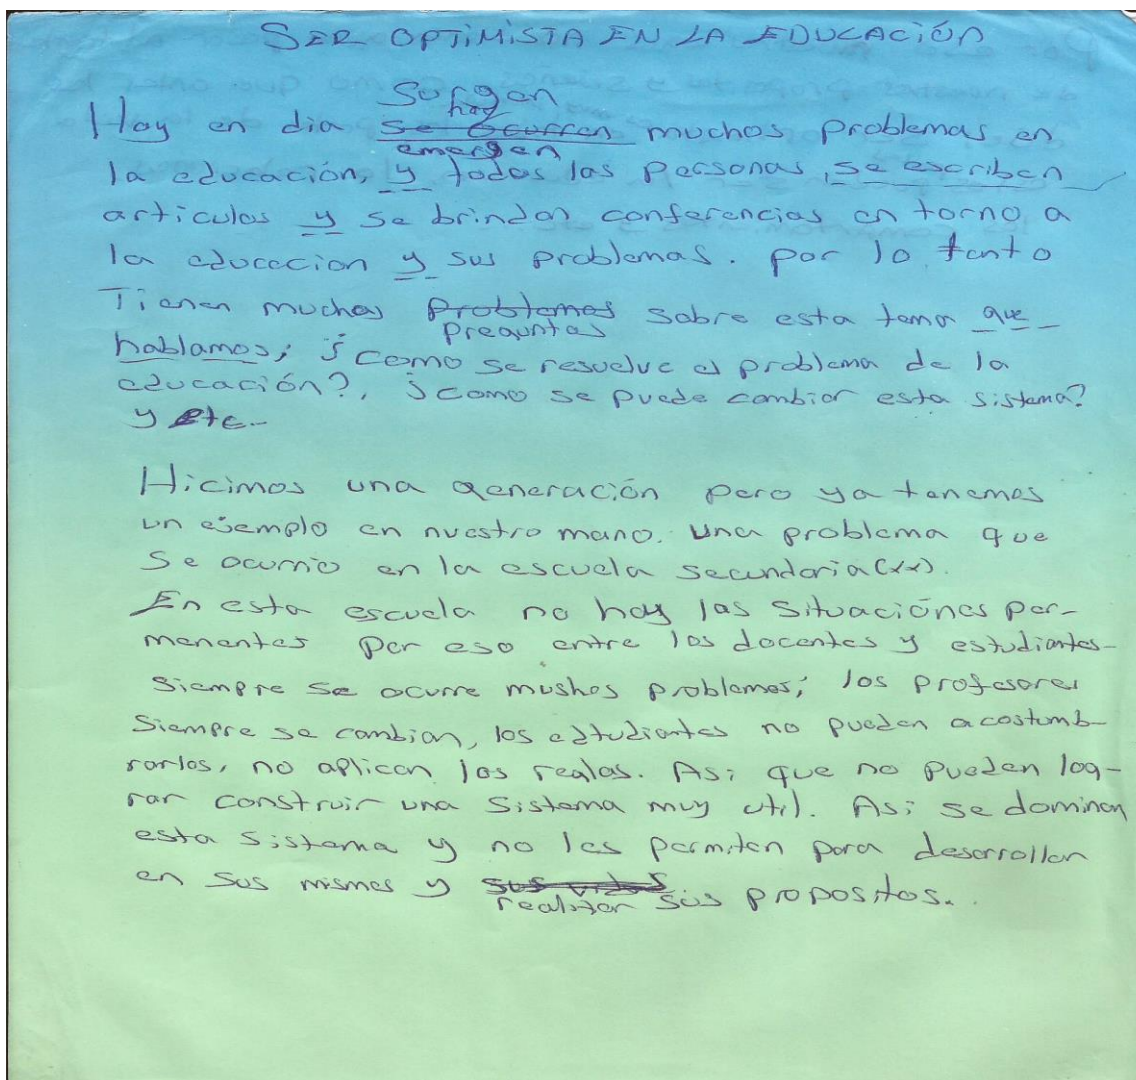 SER OPTIMISTA EN LA EDUCACIÓN
Surgen
hay
Hoy en dia se ocurren muchos problemas en
emergen
la educación, y todos las personas, se escriben
articulos y se brindan conferencias en torno a
la educacion y sus problemas. por lo tanto
Tienen muchas problemas sobre esta tema que
preguntas
hablamos; ¿como se resuelve el problema de la
educación?, ¿como se puede cambiar esta sistema?
y etc.
Hicimos una generación pero ya tenemos
un ejemplo en nuestro mano. una problema que
se ocurrio en la escuela secundaria (xx).
En esta escuela no hay las situaciónes per-
menentes por eso entre los docentes y estudiantes
siempre se ocurre mushos problemas; los profesores
siempre se cambian, los edtudiantes no pueden acostumb-
rarlos, no aplican las realas. Asi que no pueden log-
rar construir una sistema muy util. Asi se dominan
esta sistema y no les permiten para desarrollan
en sus mismes y sus vidas
realizar sus propositos.